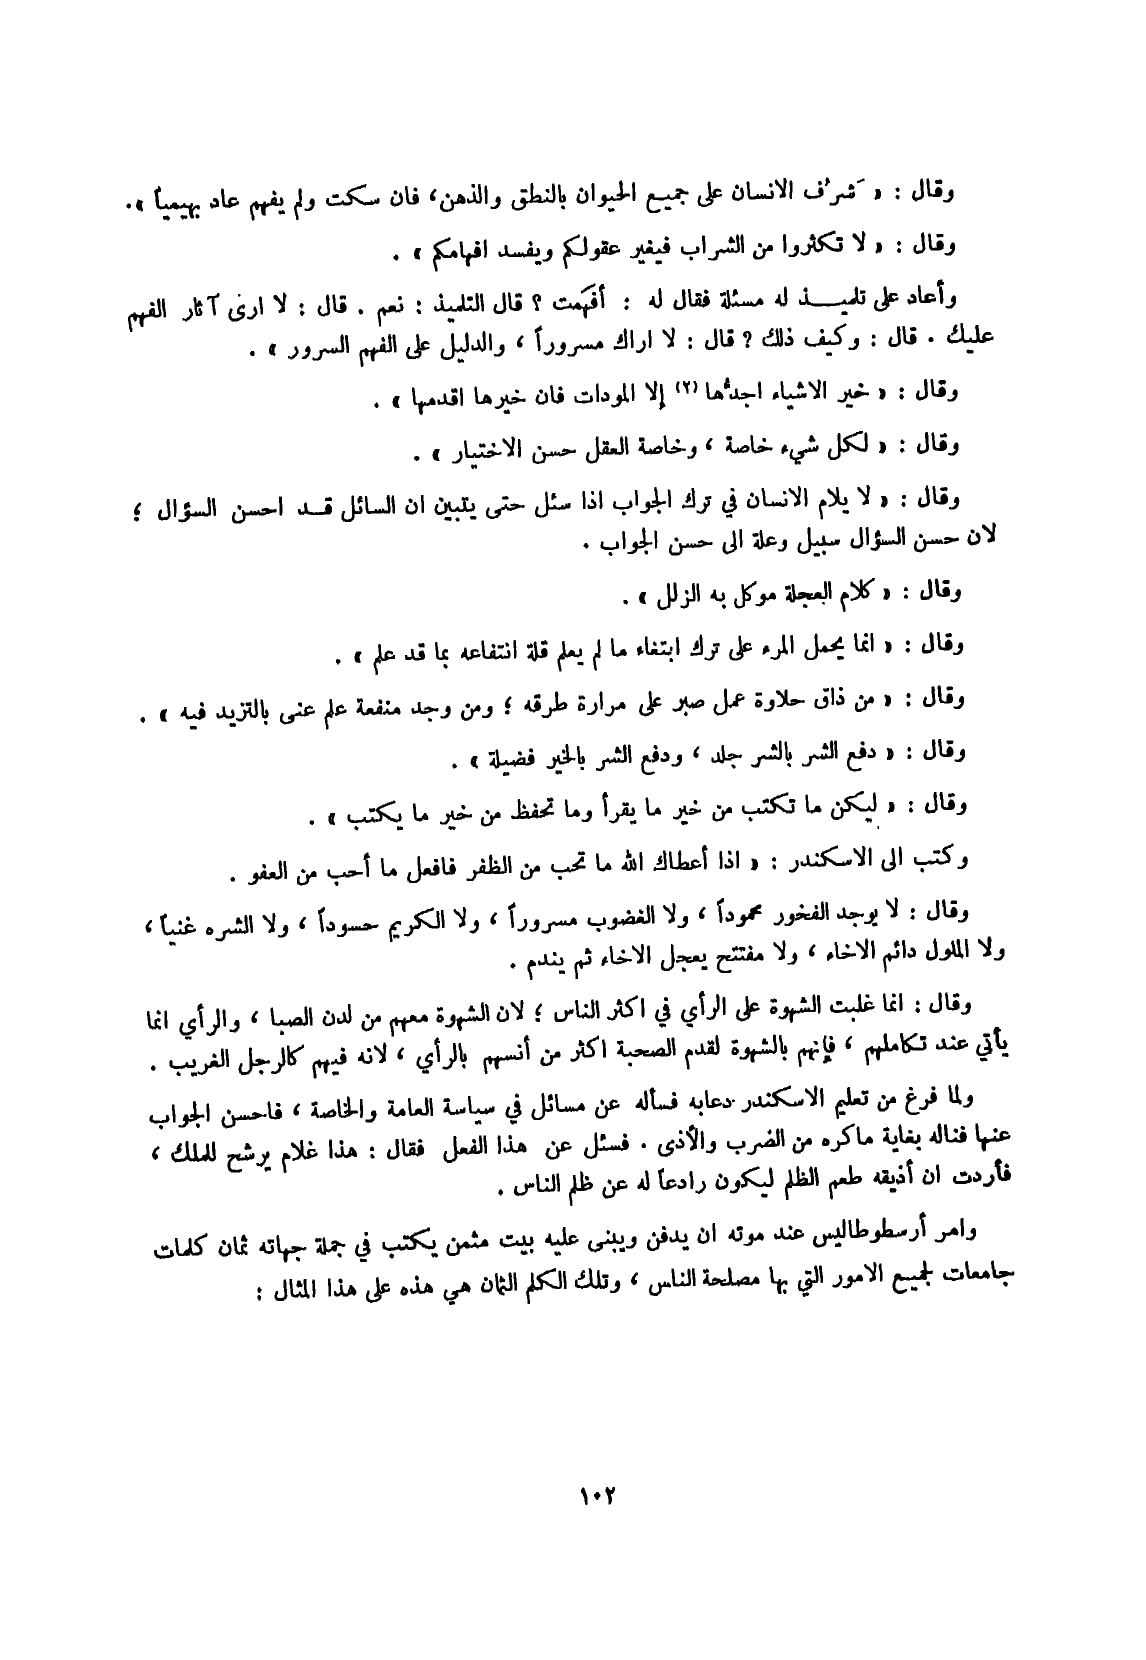 وقال : « شَرُف الانسان على جميع الحيوان بالنطق والذهن، فان سكت ولم يفهم عاد بهيمياً ».
وقال : « لا تكثروا من الشراب فيغير عقولكم ويفسد افهامكم » .
وأعاد على تلميذ له مسئلة فقال له : أفهَمت ؟ قال التلميذ : نعم . قال : لا ارى آثار الفهم
عليك . قال : وكيف ذلك ؟ قال : لا اراك مسروراً ، والدليل على الفهم السرور » .
وقال : « خير الاشياء اجدُّها (٢) إلا المودات فان خيرها اقدمها » .
وقال : « لكل شيء خاصة ، وخاصة العقل حسن الاختيار » .
وقال : « لا يلام الانسان في ترك الجواب اذا سئل حتى يتبين ان السائل قد احسن السؤال ؛
لان حسن السؤال سبيل وعلة الى حسن الجواب .
وقال : « كلام العجلة موكل به الزلل » .
وقال : « انما يحمل المرء على ترك ابتغاء ما لم يعلم قلة انتفاعه بما قد علم » .
وقال : « من ذاق حلاوة عمل صبر على مرارة طرقه ؛ ومن وجد منفعة علم عنى بالتزيد فيه » .
وقال : « دفع الشر بالشر جلد ، ودفع الشر بالخير فضيلة » .
وقال : « ليكن ما تكتب من خير ما يقرأ وما تحفظ من خير ما يكتب » .
وكتب الى الاسكندر : « اذا أعطاك الله ما تحب من الظفر فافعل ما أحب من العفو .
وقال : لا يوجد الفخور محموداً ، ولا الغضوب مسروراً ، ولا الكريم حسوداً ، ولا الشره غنياً ،
ولا الملول دائم الاخاء ، ولا مفتتح يعجل الاخاء ثم يندم .
وقال : انما غلبت الشهوة على الرأي في اكثر الناس ؛ لان الشهوة معهم من لدن الصبا ، والرأي انما
يأتي عند تكاملهم ، فإنهم بالشهوة لقدم الصحبة اكثر من أنسهم بالرأي ، لانه فيهم كالرجل الغريب .
ولما فرغ من تعليم الاسكندر دعابه فسأله عن مسائل في سياسة العامة والخاصة ، فاحسن الجواب
عنها فناله بغاية ماكره من الضرب والأذى . فسئل عن هذا الفعل فقال : هذا غلام يرشح للملك ،
فأردت ان أذيقه طعم الظلم ليكون رادعاً له عن ظلم الناس .
وامر أرسطوطاليس عند موته ان يدفن ويبنى عليه بيت مثمن يكتب في جملة جهاته ثمان كلمات
جامعات لجميع الامور التي بها مصلحة الناس ، وتلك الكلم الثمان هي هذه على هذا المثال :
١٠٢